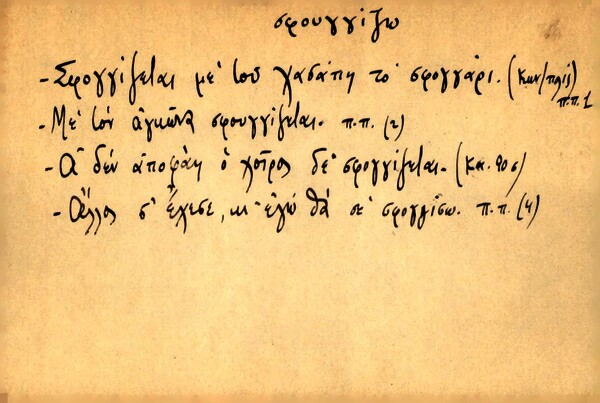 σφουγγίζω
- Σφογγίζεται με τοῦ χασάπη το σφογγάρι. (Κων/πολις) π.π. 1
- Με τον ἀγκῶνα σφουγγίζεται. π.π. (2)
- Ἅ δέν ἀποφάη ὁ χοῖρος δε σφογγίζεται.
- Ἄλλος σ' ἔχεσε, κι ἐγώ θά σε σφογγίσω. π.π. (4)